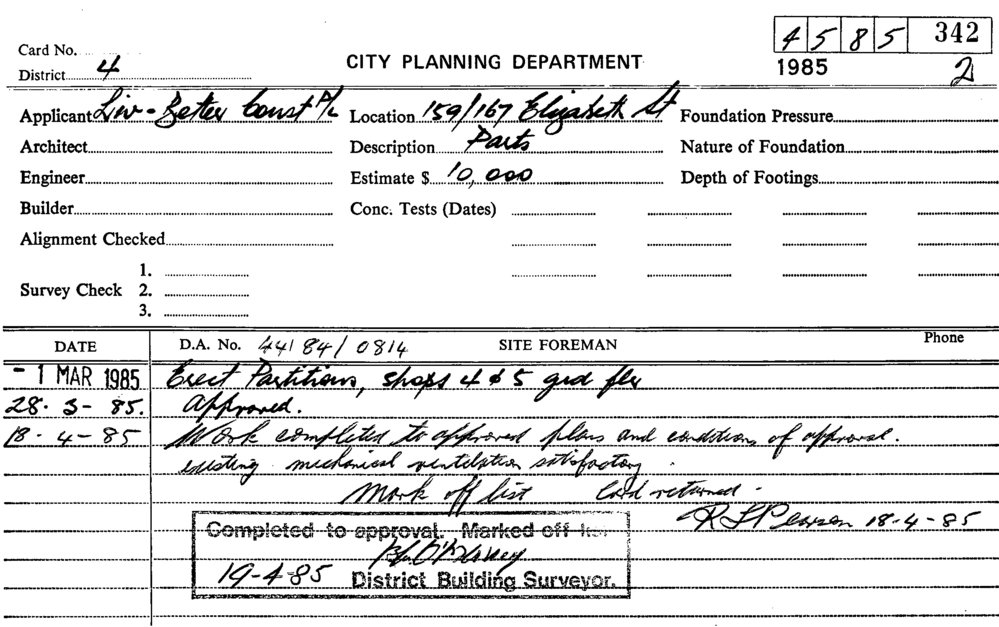 4 5 8 5 342
Card No.
CITY PLANNING DEPARTMENT
1985 2
District 4
Applicant Liv-Better Const P/L Location 159/167 Elizabeth St Foundation Pressure
Architect Description Parts Nature of Foundation
Engineer Estimate $ 10,000 Depth of Footings
Builder Conc. Tests (Dates)
Alignment Checked
1.
Survey Check 2.
3.
DATE D.A. No. 44/84/0814 SITE FOREMAN Phone
- 1 MAR 1985 Erect Partitions, shops 4 & 5 grd flr
28. 3- 85. Approved.
18 - 4 - 85 Work completed to approved plans and conditions of approval.
existing mechanical ventilation satisfactory.
Mark off list Card returned -
18-4-85
Completed to approval. Marked off list
19-4-85 District Building Surveyor.